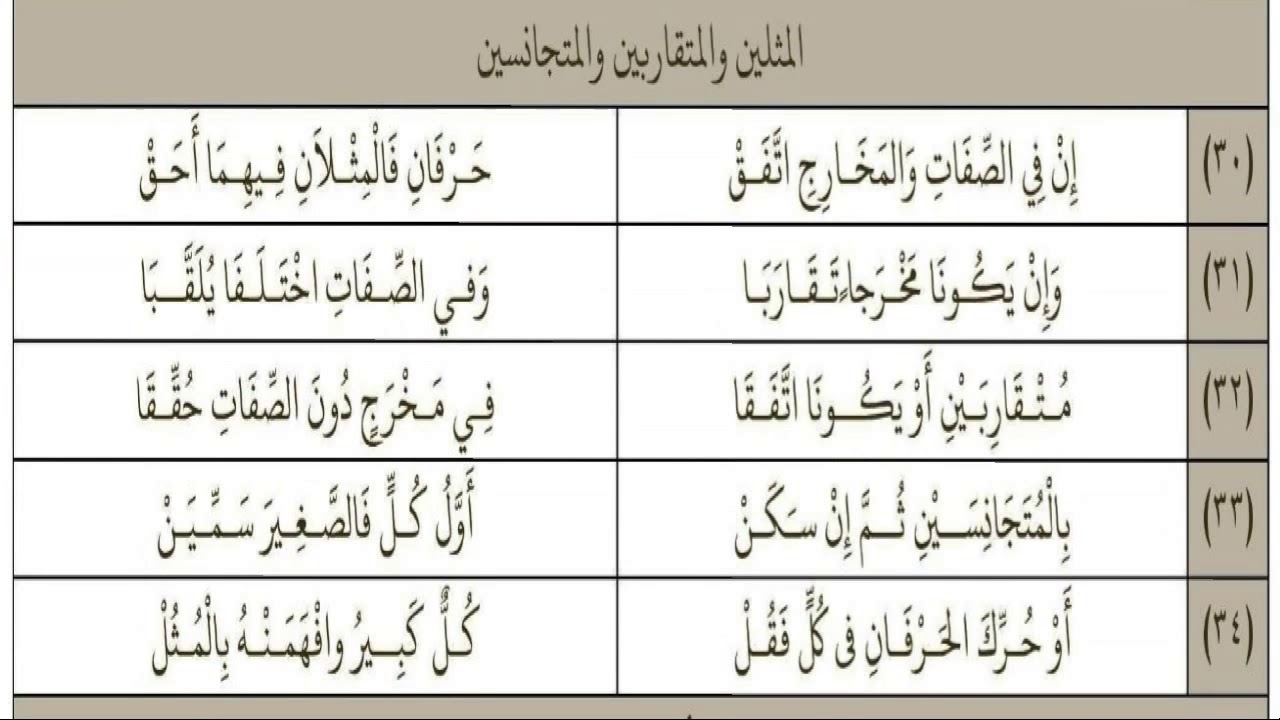 المثلين والمتقاربين والمتجانسين
(٣٠) إِنْ فِي الصِّفَاتِ وَالمَخَارِجِ اتَّفَقْ حَرْفَانِ فَالْمِثْلاَنِ فِيهِمَا أَحَقْ
(٣١) وَإِنْ يَكُونَا مَخْرَجاً تَقَارَبَا وَفي الصِّفَاتِ اخْتَلَفَا يُلَقَّبَا
(٣٢) مُتْقَارِبَيْنِ أَوْ يَكُونَا اتَّفَقَا فِي مَخْرَجٍ دُونَ الصِّفَاتِ حُقِّقَا
(٣٣) بِالْمُتَجَانِسَيْنِ ثُمَّ إِنْ سَكَنْ أَوَّلُ كُلٍّ فَالصَّغِيرَ سَمِّيَنْ
(٣٤) أَوْ حُرِّكَ الحَرْفَانِ فى كُلٍّ فَقُلْ كُلٌّ كَبِيرُ وافْهَمَنْهُ بِالْمُثُلْ